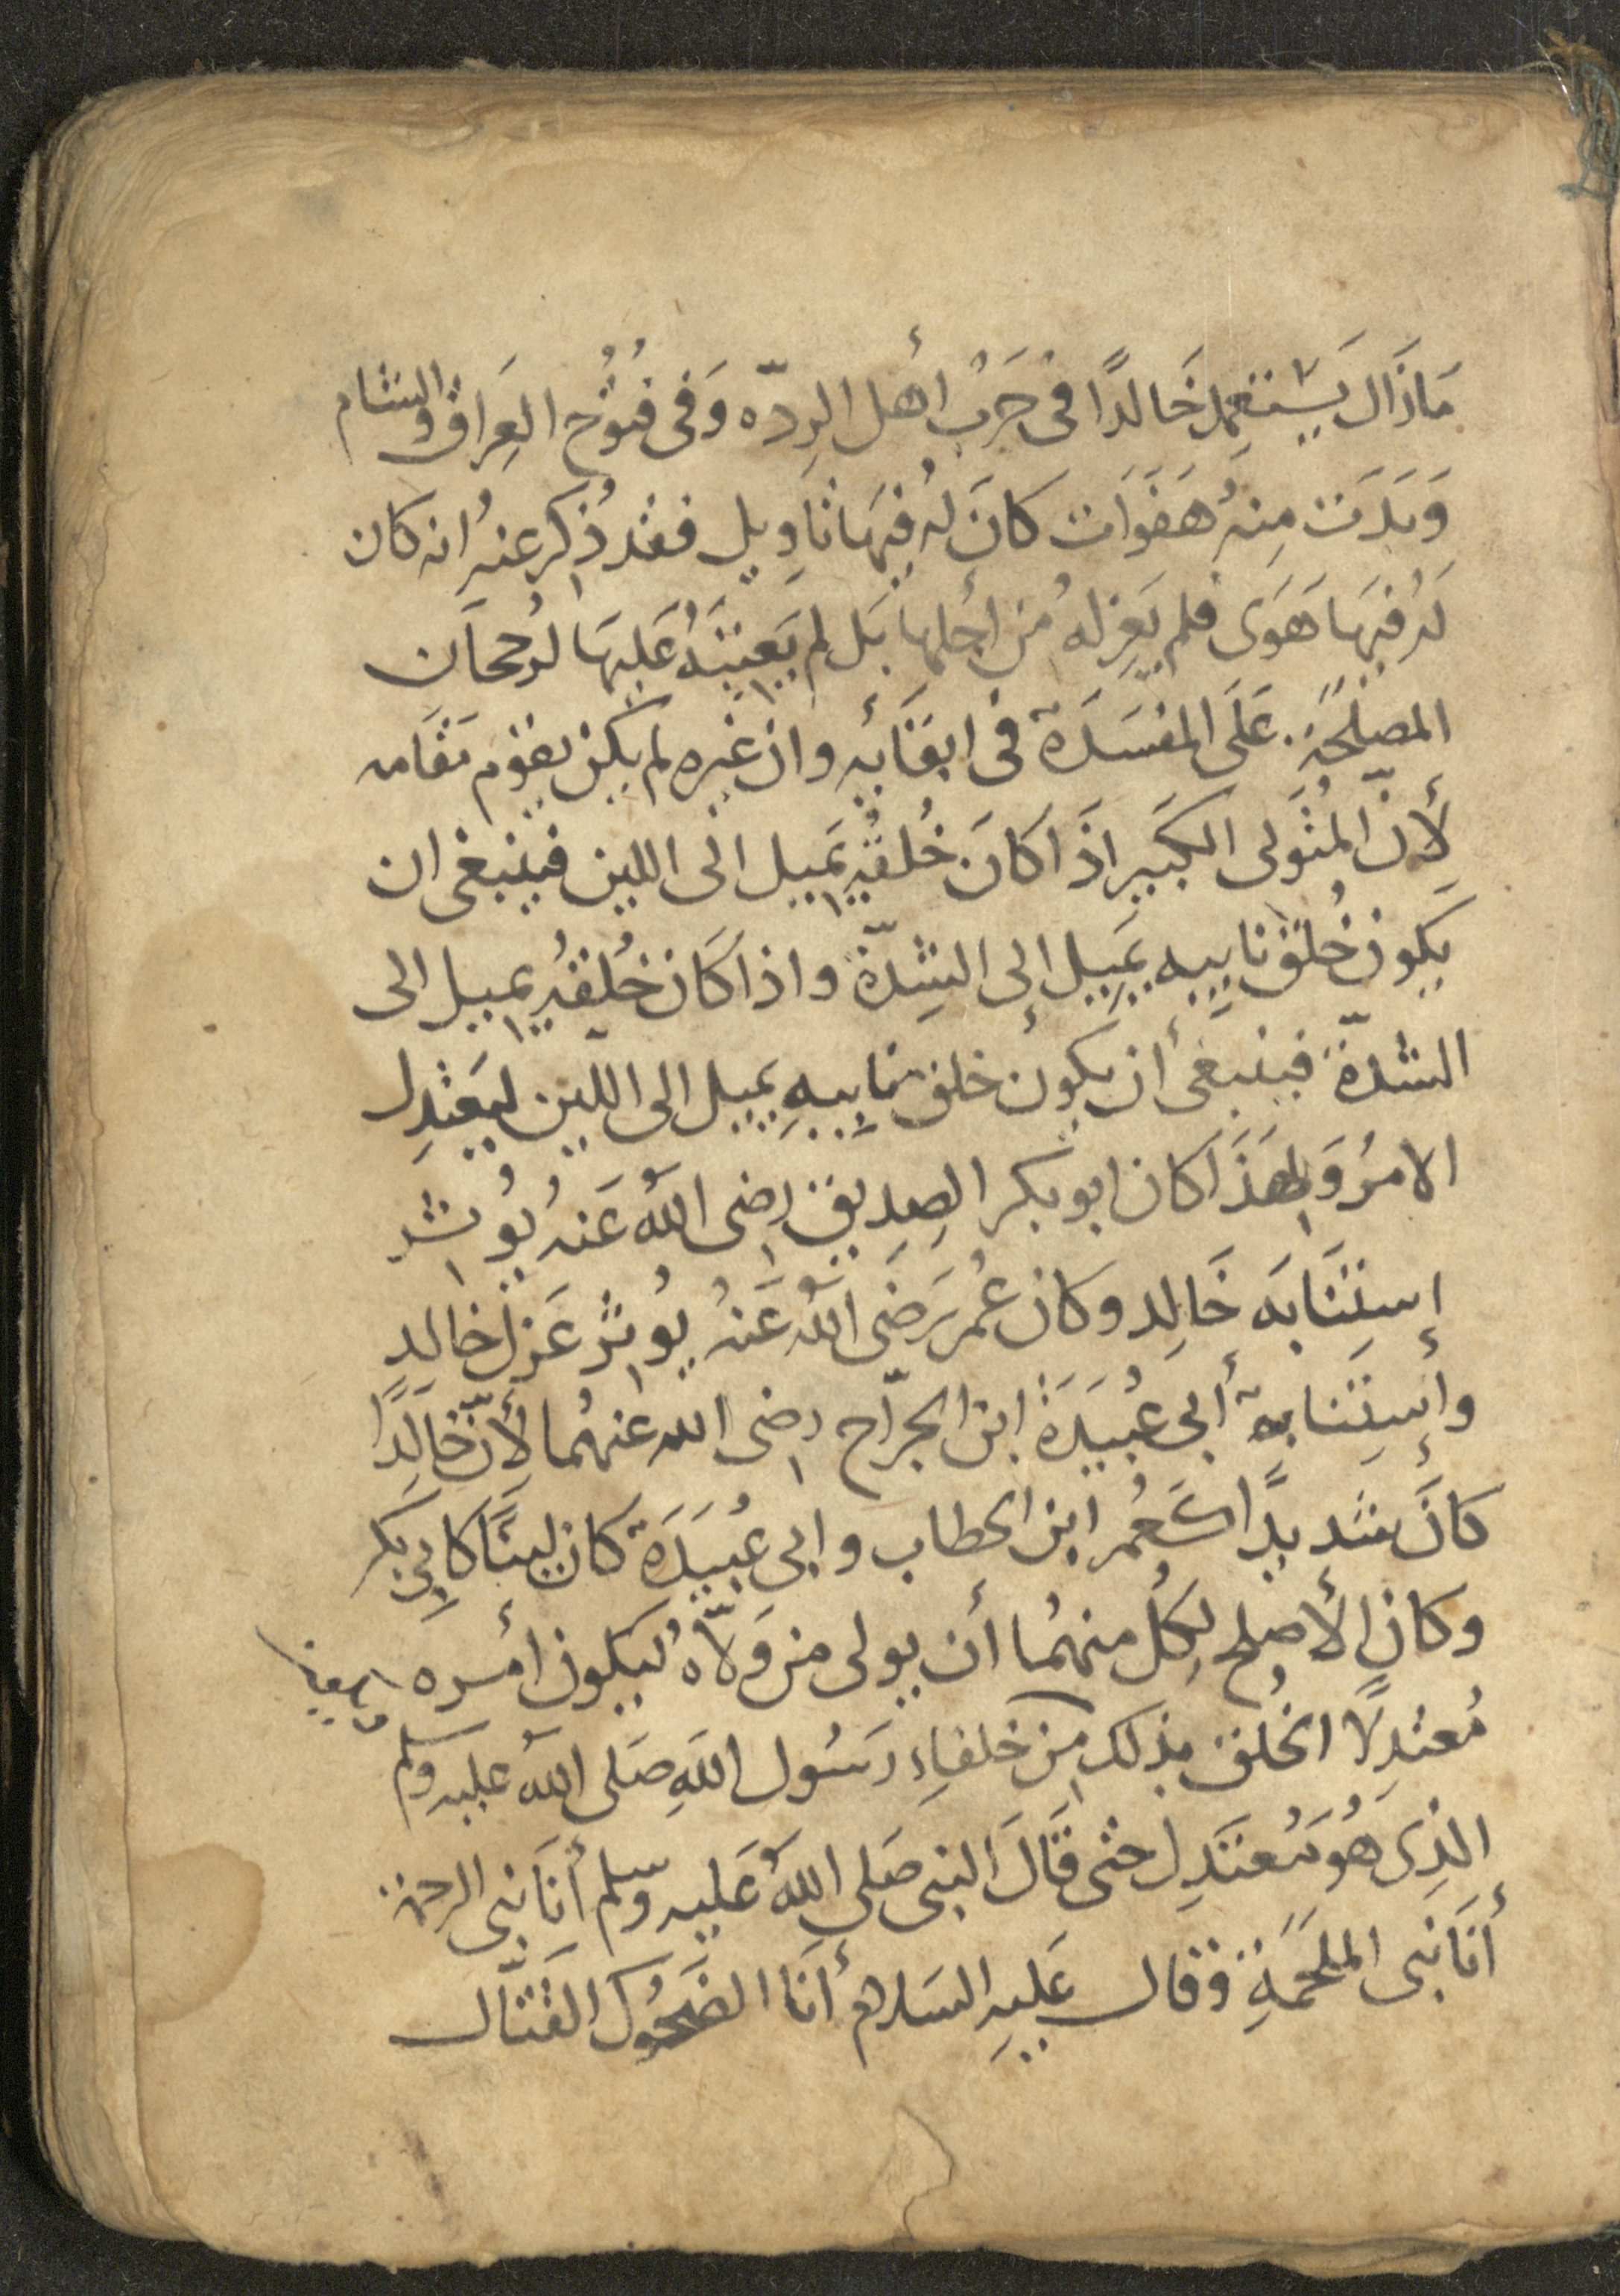 مَازَال يَسْتعمِل خَالدًا فى حَرْب أهل الرِدّه وَفى فتُوُح العِرَاق والشام
وَبَدَت مِنهُ هَفوَات كانَ لهُ فيهَا تاوِيل فقد ذُكر عنهُ انه كان
لهُ فيهَا هَوَى فلم يَعزله مُن اجلها بَل لم يَعيّبَهُ عَليهَا لرُجحَان
المصلحَة. عَلَى المفسَدَة فى ابقائِه وان غيره لم يكن يقوم مَقامه
لأِنّ المُتَولى الكَبير اذَا كانَ خُلقُه يَميل الى اللين فينبغى ان
يكون خُلق نايبه يمَيل إلى الشِدّة واذا كان خُلقُه يميل الى
الشدّة فينبغى أن يكون خلق نايِبهِ يميل الى اللين ليَعتدِل
الامرُ وَلهَذَا كان ابو بكر الصِديق رضى اللهُ عَنهُ يُوثر
إستِنَابَه خَالِد وكان عُمرَ رَضى اللهُ عَنهُ يُوثر عَزل خالد
وإستِنابة أبى عُبيَدَة ابن الجرّاح رضى الله عنهُما لأِنّ خالِدًا
كانَ شديدًا كَعُمر ابن الخطاب وابى عُبيَدَة كان لينًا كابى بكر
وكان الأصلح لِكُل منهُما أن يولى من وَلّاهُ ليكون أمره
مُعتدِلًا الخُلق بذلك مِن خلفاءِ رَسُول اللهِ صَلى اللهُ عليه وسلم
الذِى هُو مُعتَدِل حتى قَالَ النبى صَلى اللهُ عَليه وسلم أنَا نبى الرحمة
أنَا نبى الملحَمَةِ وقال عَليهِ السَلام أنَا الضَحُوك القتّال